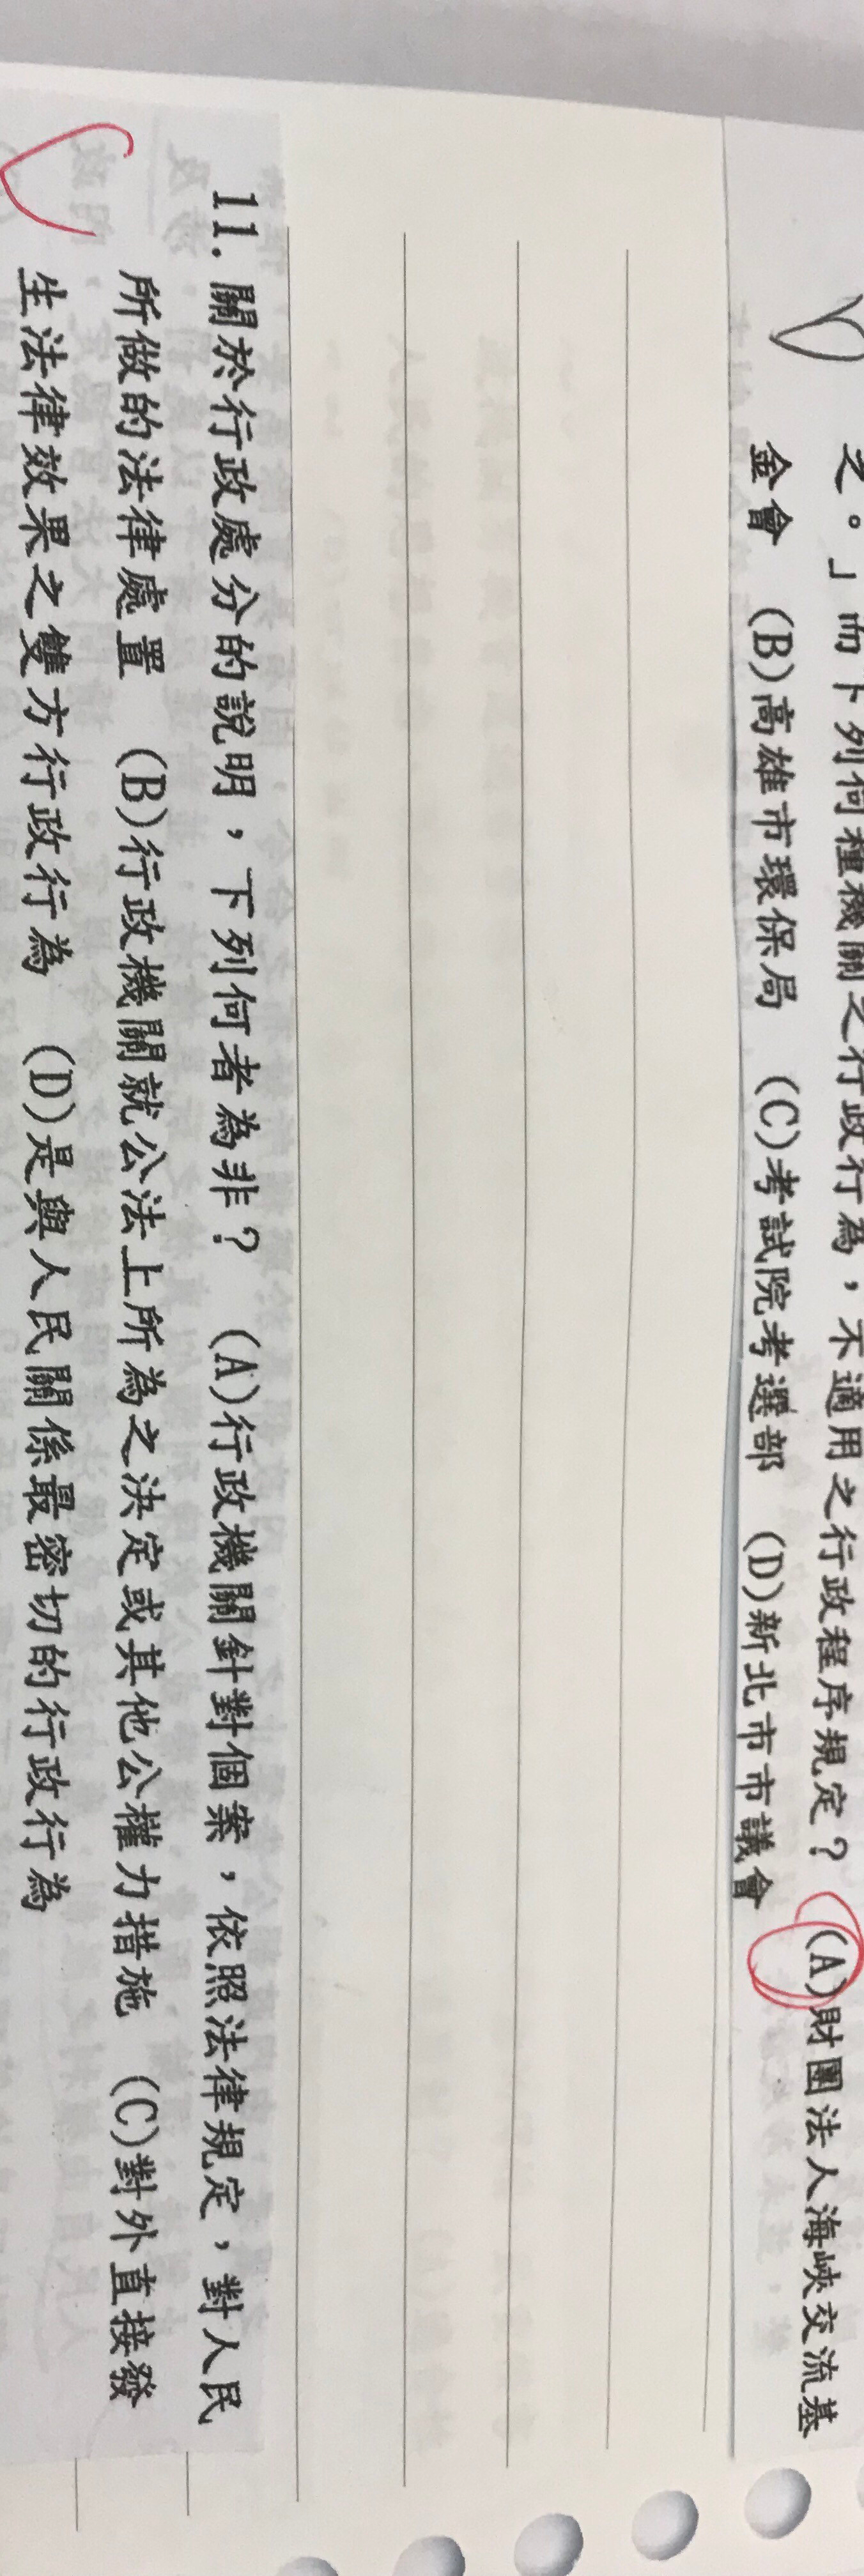 之。」而下列何種機關之行政行為，不適用之行政程序規定？ (A)財團法人海峽交流基
金會 (B)高雄市環保局 (C)考試院考選部 (D)新北市市議會
11. 關於行政處分的說明，下列何者為非？ (A)行政機關針對個案，依照法律規定，對人民
所做的法律處置 (B)行政機關就公法上所為之決定或其他公權力措施 (C)對外直接發
生法律效果之雙方行政行為 (D)是與人民關係最密切的行政行為